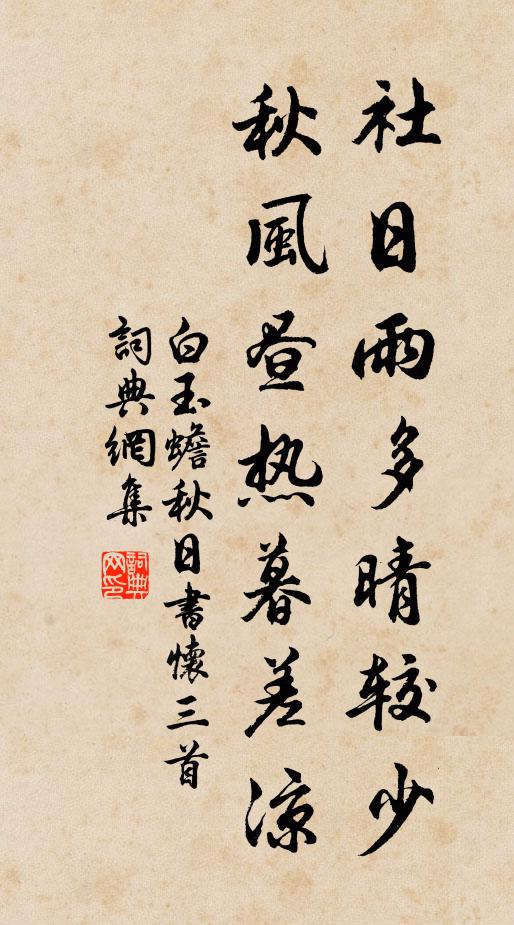 社日雨多晴较少
秋風昼热暮差凉
白玉蟾秋日書懷三首
詞典網集
詞典網印